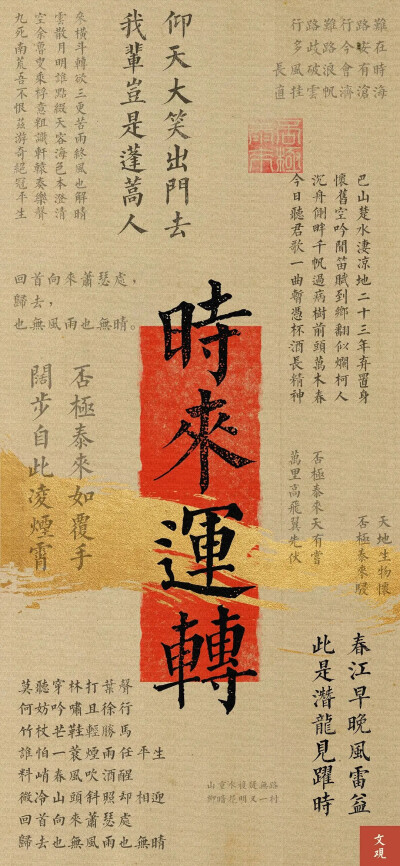 行路難行路難
多歧路今安在
長風破浪會有時
直挂雲帆濟滄海
仰天大笑出門去
我輩豈是蓬蒿人
參橫斗轉欲三更苦雨終風也解晴
雲散月明誰點綴天容海色本澄清
空余魯叟乘桴意粗識軒轅奏樂聲
九死南荒吾不恨茲游奇絕冠平生
巴山楚水淒涼地二十三年弃置身
懷舊空吟聞笛賦到鄉翻似爛柯人
沉舟側畔千帆過病樹前頭萬木春
今日聽君歌一曲暫憑杯酒長精神
回首向來蕭瑟處，
歸去，
也無風雨也無晴。
時來運轉
否極泰來如覆手
闊步自此淩煙霄
天地生物懷
否極泰來
否極泰來天有嘗
萬里高飛翼先伏
春江早晚風雷益
此是潛龍見躍時
莫聽穿林打葉聲
何妨吟嘯且徐行
竹杖芒鞋輕勝馬
誰怕一蓑煙雨任平生
料峭春風吹酒醒
微冷山頭斜照卻相迎
回首向來蕭瑟處
歸去也無風雨也無晴
山重水複疑無路
柳暗花明又一村
文現